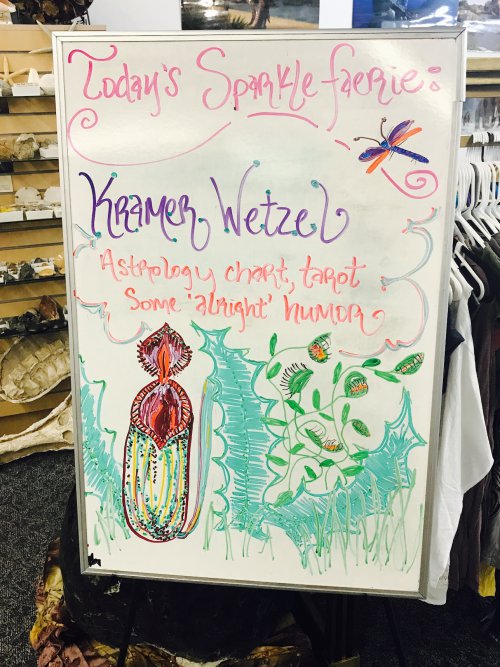 Today's Sparkle faerie:
Kramer Wetzel
Astrology chart, tarot
Some 'alright' humor